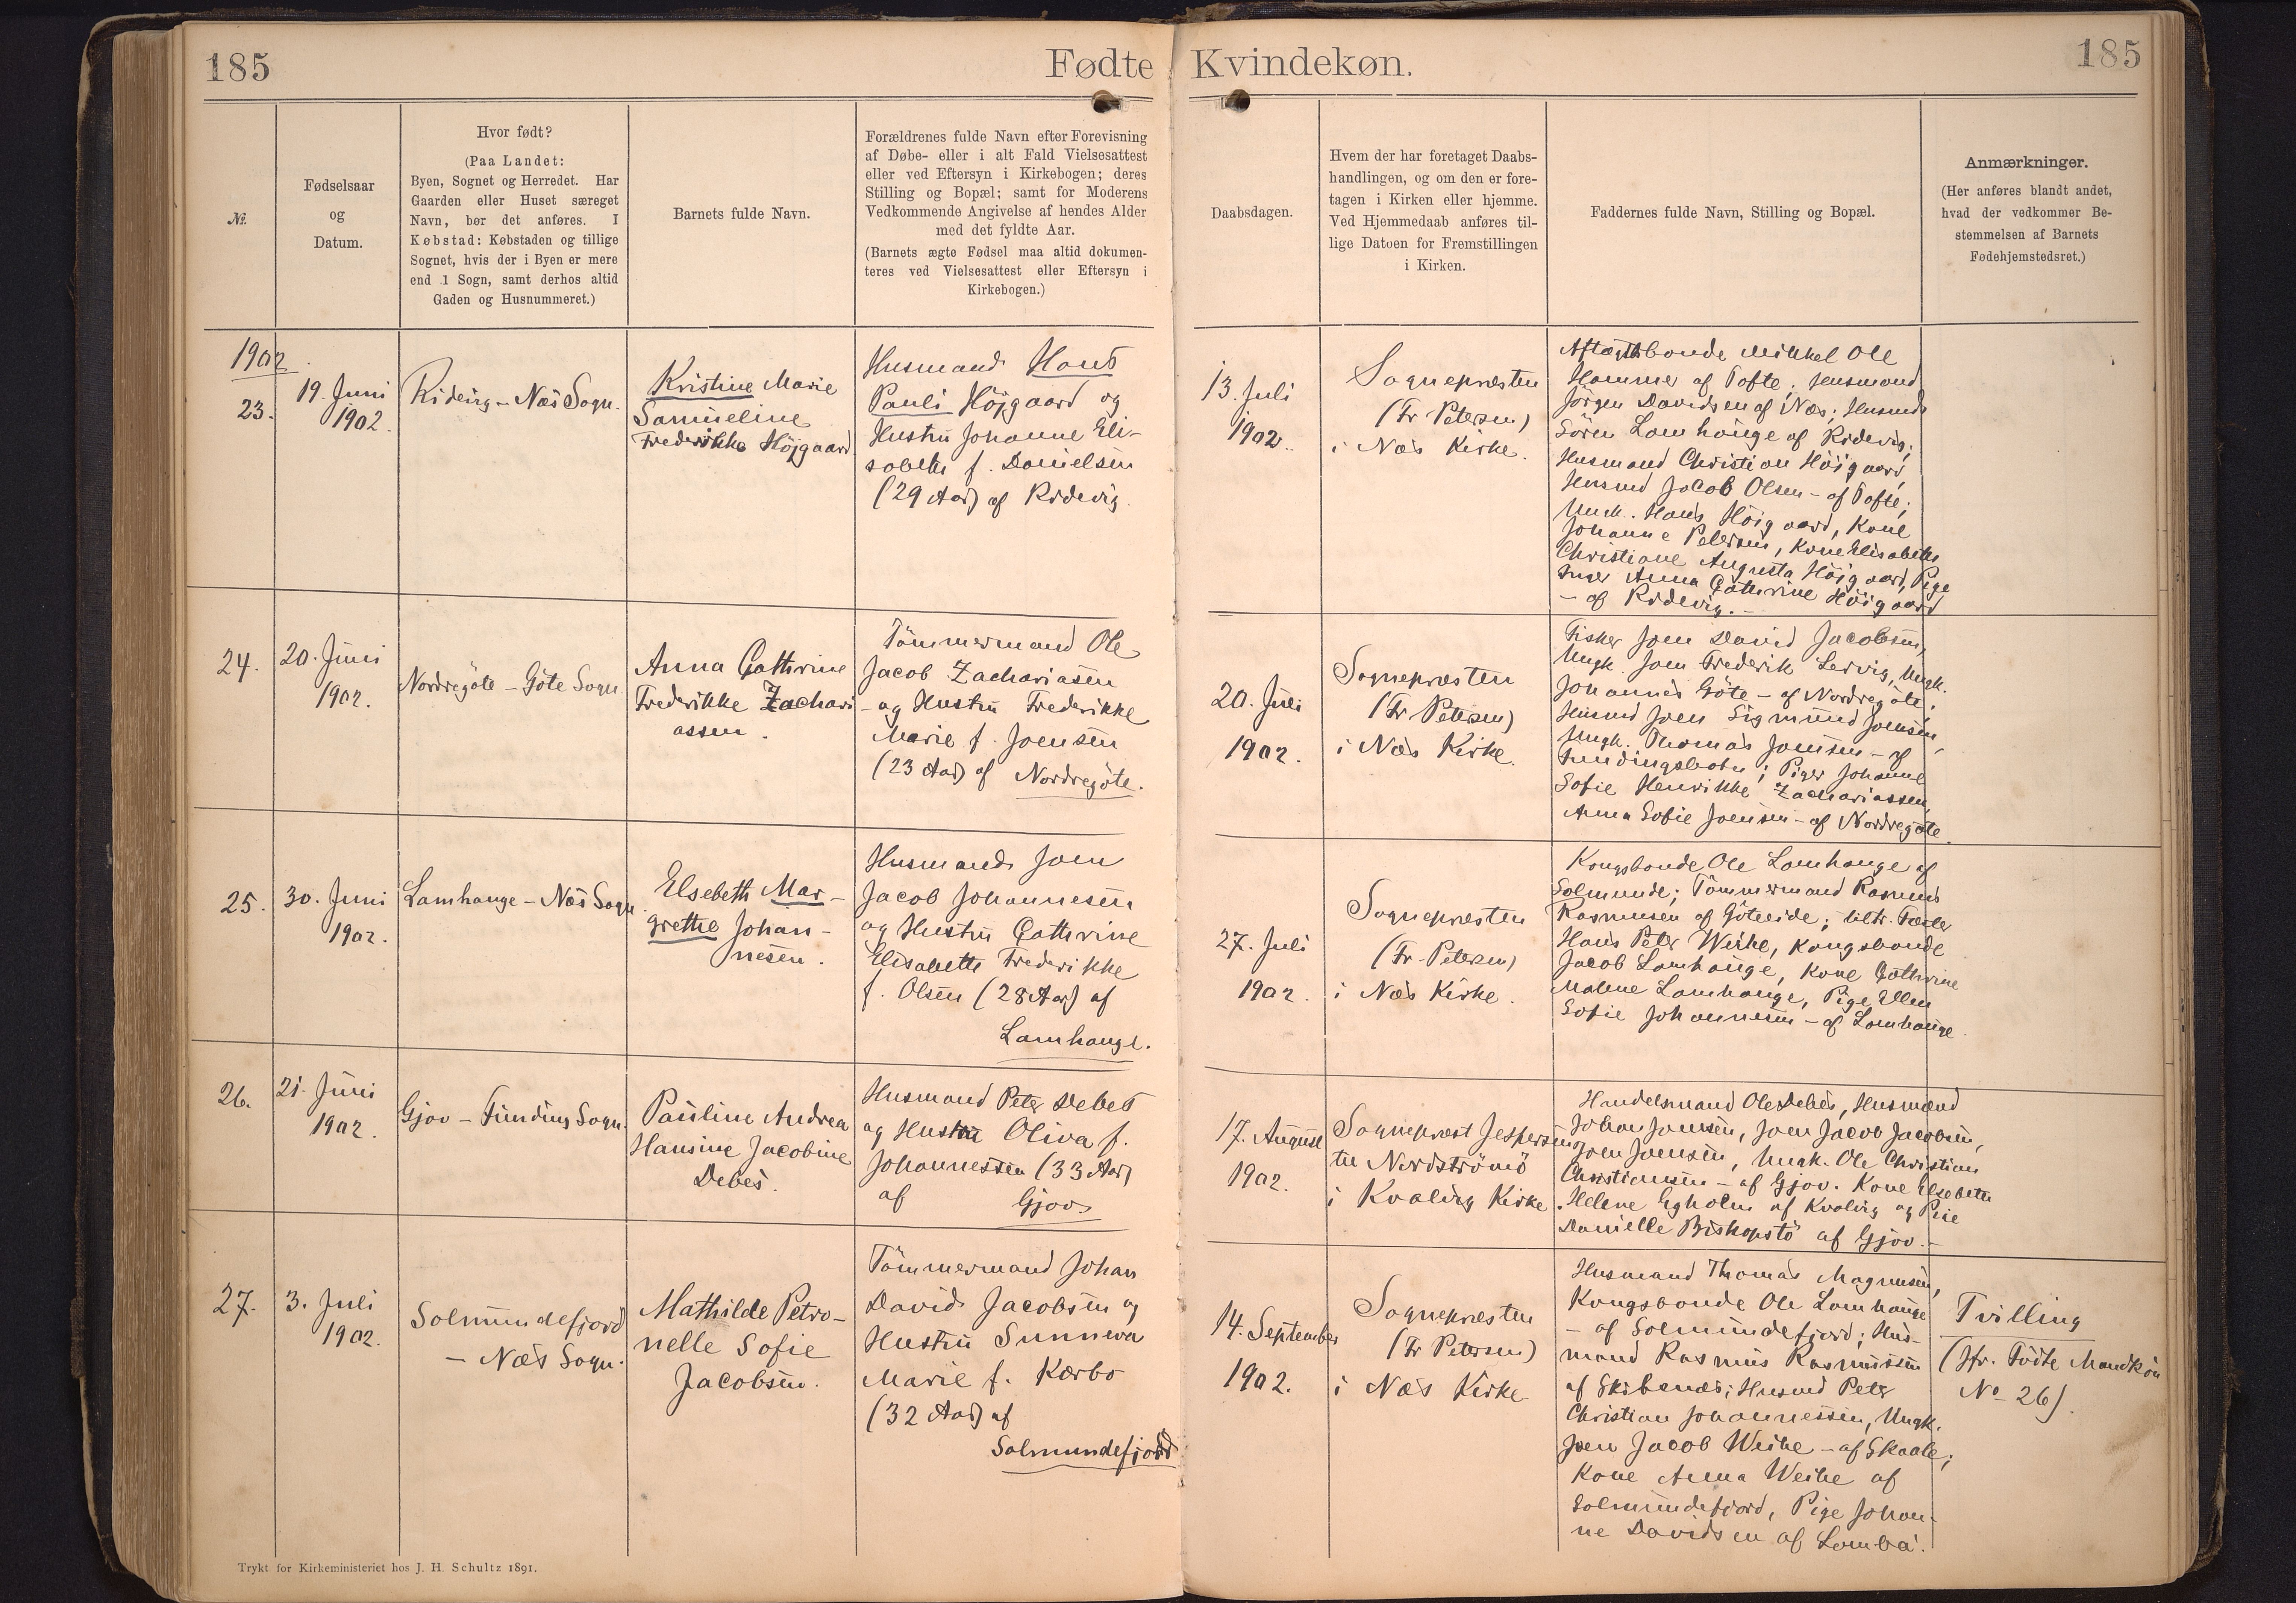 185
Fødte
Kvindekøn.
185
№.
Fødselsaar
og
Datum.
Hvor født?
(Paa Landet:
Byen, Sognet og Herredet. Har
Gaarden eller Huset særeget
Navn, bør det anføres. I
Købstad: Købstaden og tillige
Sognet, hvis der i Byen er mere
end 1 Sogn, samt derhos altid
Gaden og Husnummeret.)
Barnets fulde Navn.
Forældrenes fulde Navn efter Forevisning
af Døbe- eller i alt Fald Vielsesattest
eller ved Eftersyn i Kirkebogen; deres
Stilling og Bopæl; samt for Moderens
Vedkommende Angivelse af hendes Alder
med det fyldte Aar.
(Barnets ægte Fødsel maa altid dokumen-
teres ved Vielsesattest eller Eftersyn i
Kirkebogen.)
Daabsdagen.
Hvem der har foretaget Daabs-
handlingen, og om den er fore-
tagen i Kirken eller hjemme.
Ved Hjemmedaab anføres til-
lige Datoen for Fremstillingen
i Kirken.
Faddernes fulde Navn, Stilling og Bopæl.
Anmærkninger.
(Her anføres blandt andet,
hvad der vedkommer Be-
stemmelsen af Barnets
Fødehjemstedsret.)
1902.
23.
19. Juni
1902.
Ridevig – Næs Sogn.
Kristine Marie
Samueline
Frederikke Höjgaard
Husmand Hans
Pauli Höjgaard og
Hustru Johanne Eli-
sabeth f. Danielsen
(29 Aar) af Ridevig.
13. Juli
1902.
Sognepræsten
(Fr Petersen)
i Næs Kirke.
Aftægtsbonde Mikkel Ole
Hammer af Tofte; Husmænd
Jörgen Davidsen af Næs; Husmd
Sören Lamhauge af Ridevig;
Husmand Christian Höigaard,
Husmd Jacob Olsen – af Tofte;
Ungk. Hans Höigaard, Kone
Johanne Petersen, Kone Elisabeth
Christiane Augusta Höigaard, Pige
Anna Cathrine Höigaard
– af Ridevig. –
24.
20. Juni
1902.
Nordregöte – Göte Sogn.
Anna Cathrine
Frederikke Zachari
assen.
Tömmermand Ole
Jacob Zachariasen
– og Hustru Frederikke
Marie f. Joensen
(23 Aar) af Nordregöte.
20. Juli
1902.
Sognepræsten
(Fr Petersen)
i Næs Kirke.
Fisker Joen David Jacobsen,
Ungk. Joen Frederik Lervig, Ungk.
Johannes Göte – af Nordregöte;
Husmd Joen Sigmund Joensen,
Ungk. Thomas Joensen – af
Fundingsbotn; Piger Johanne
Sofie Henrikke Zachariassen,
Anna Sofie Joensen – af Nordregöte.
25.
30. Juni
1902.
Lamhauge – Næs Sogn.
Elsebeth Mar-
grethe Johan-
nesen.
Husmand Joen
Jacob Johannesen
og Hustru Cathrine
Elisabeth Frederikke
f. Olsen (28 Aar) af
Lamhauge.
27. Juli
1902.
Sognepræsten
(Fr. Petersen)
i Næs Kirke.
Kongsbonde Ole Lamhauge af
Solmunde; Tömmermand Rasmus
Rasmussen af Göteeide;
Hans Peter Weihe, Kongsbonde
Jacob Lamhauge, Kone Cathrine
Malene Lamhauge, Pige Ellen
Sofie Johannesen – af Lamhauge.
26.
21. Juni
1902.
Gjov – Funding Sogn.
Pauline Andrea
Hansine Jacobine
Debes.
Husmand Peter Debes
og Hustru Oliva f.
Johannessen (33 Aar)
af Gjov.
17. August
1902.
Sognepræst Jespersen
til Nordströmö
i Kvalvig Kirke.
Handelsmand Ole Debes, Husmænd
Johan Joensen, Joen Jacob Jacobsen,
Joen Joensen, Ungk. Ole Christian
Christiansen – af Gjov. Kone Elsebeth
Helene Egholm af Kvalvig og Pige
Danielle Biskopstö af Gjov. –
27.
3. Juli
1902.
Solmundefjord
– Næs Sogn.
Mathilde Petro-
nelle Sofie
Jacobsen.
Tömmermand Johan
David Jacobsen og
Hustru Sunneva
Marie f. Kærbo
(32 Aar) af
Solmundefjord
14. September
1902.
Sognepræsten
(Fr Petersen)
i Næs Kirke
Husmand Thomas Magnusen,
Kongsbonde Ole Lamhauge
– af Solmundefjord; Hus-
mand Rasmus Rasmussen
af Skibenæs; Husmd Peter
Christian Johannessen, Ungk.
Joen Jacob Weihe – af Skaale;
Kone Anna Weihe af
Solmundefjord, Pige Johan-
ne Davidsen af Lamba.
Tvilling
(Jfr. Födte Mandkön
No 26).
Trykt for Kirkeministeriet hos J. H. Schultz 1891.